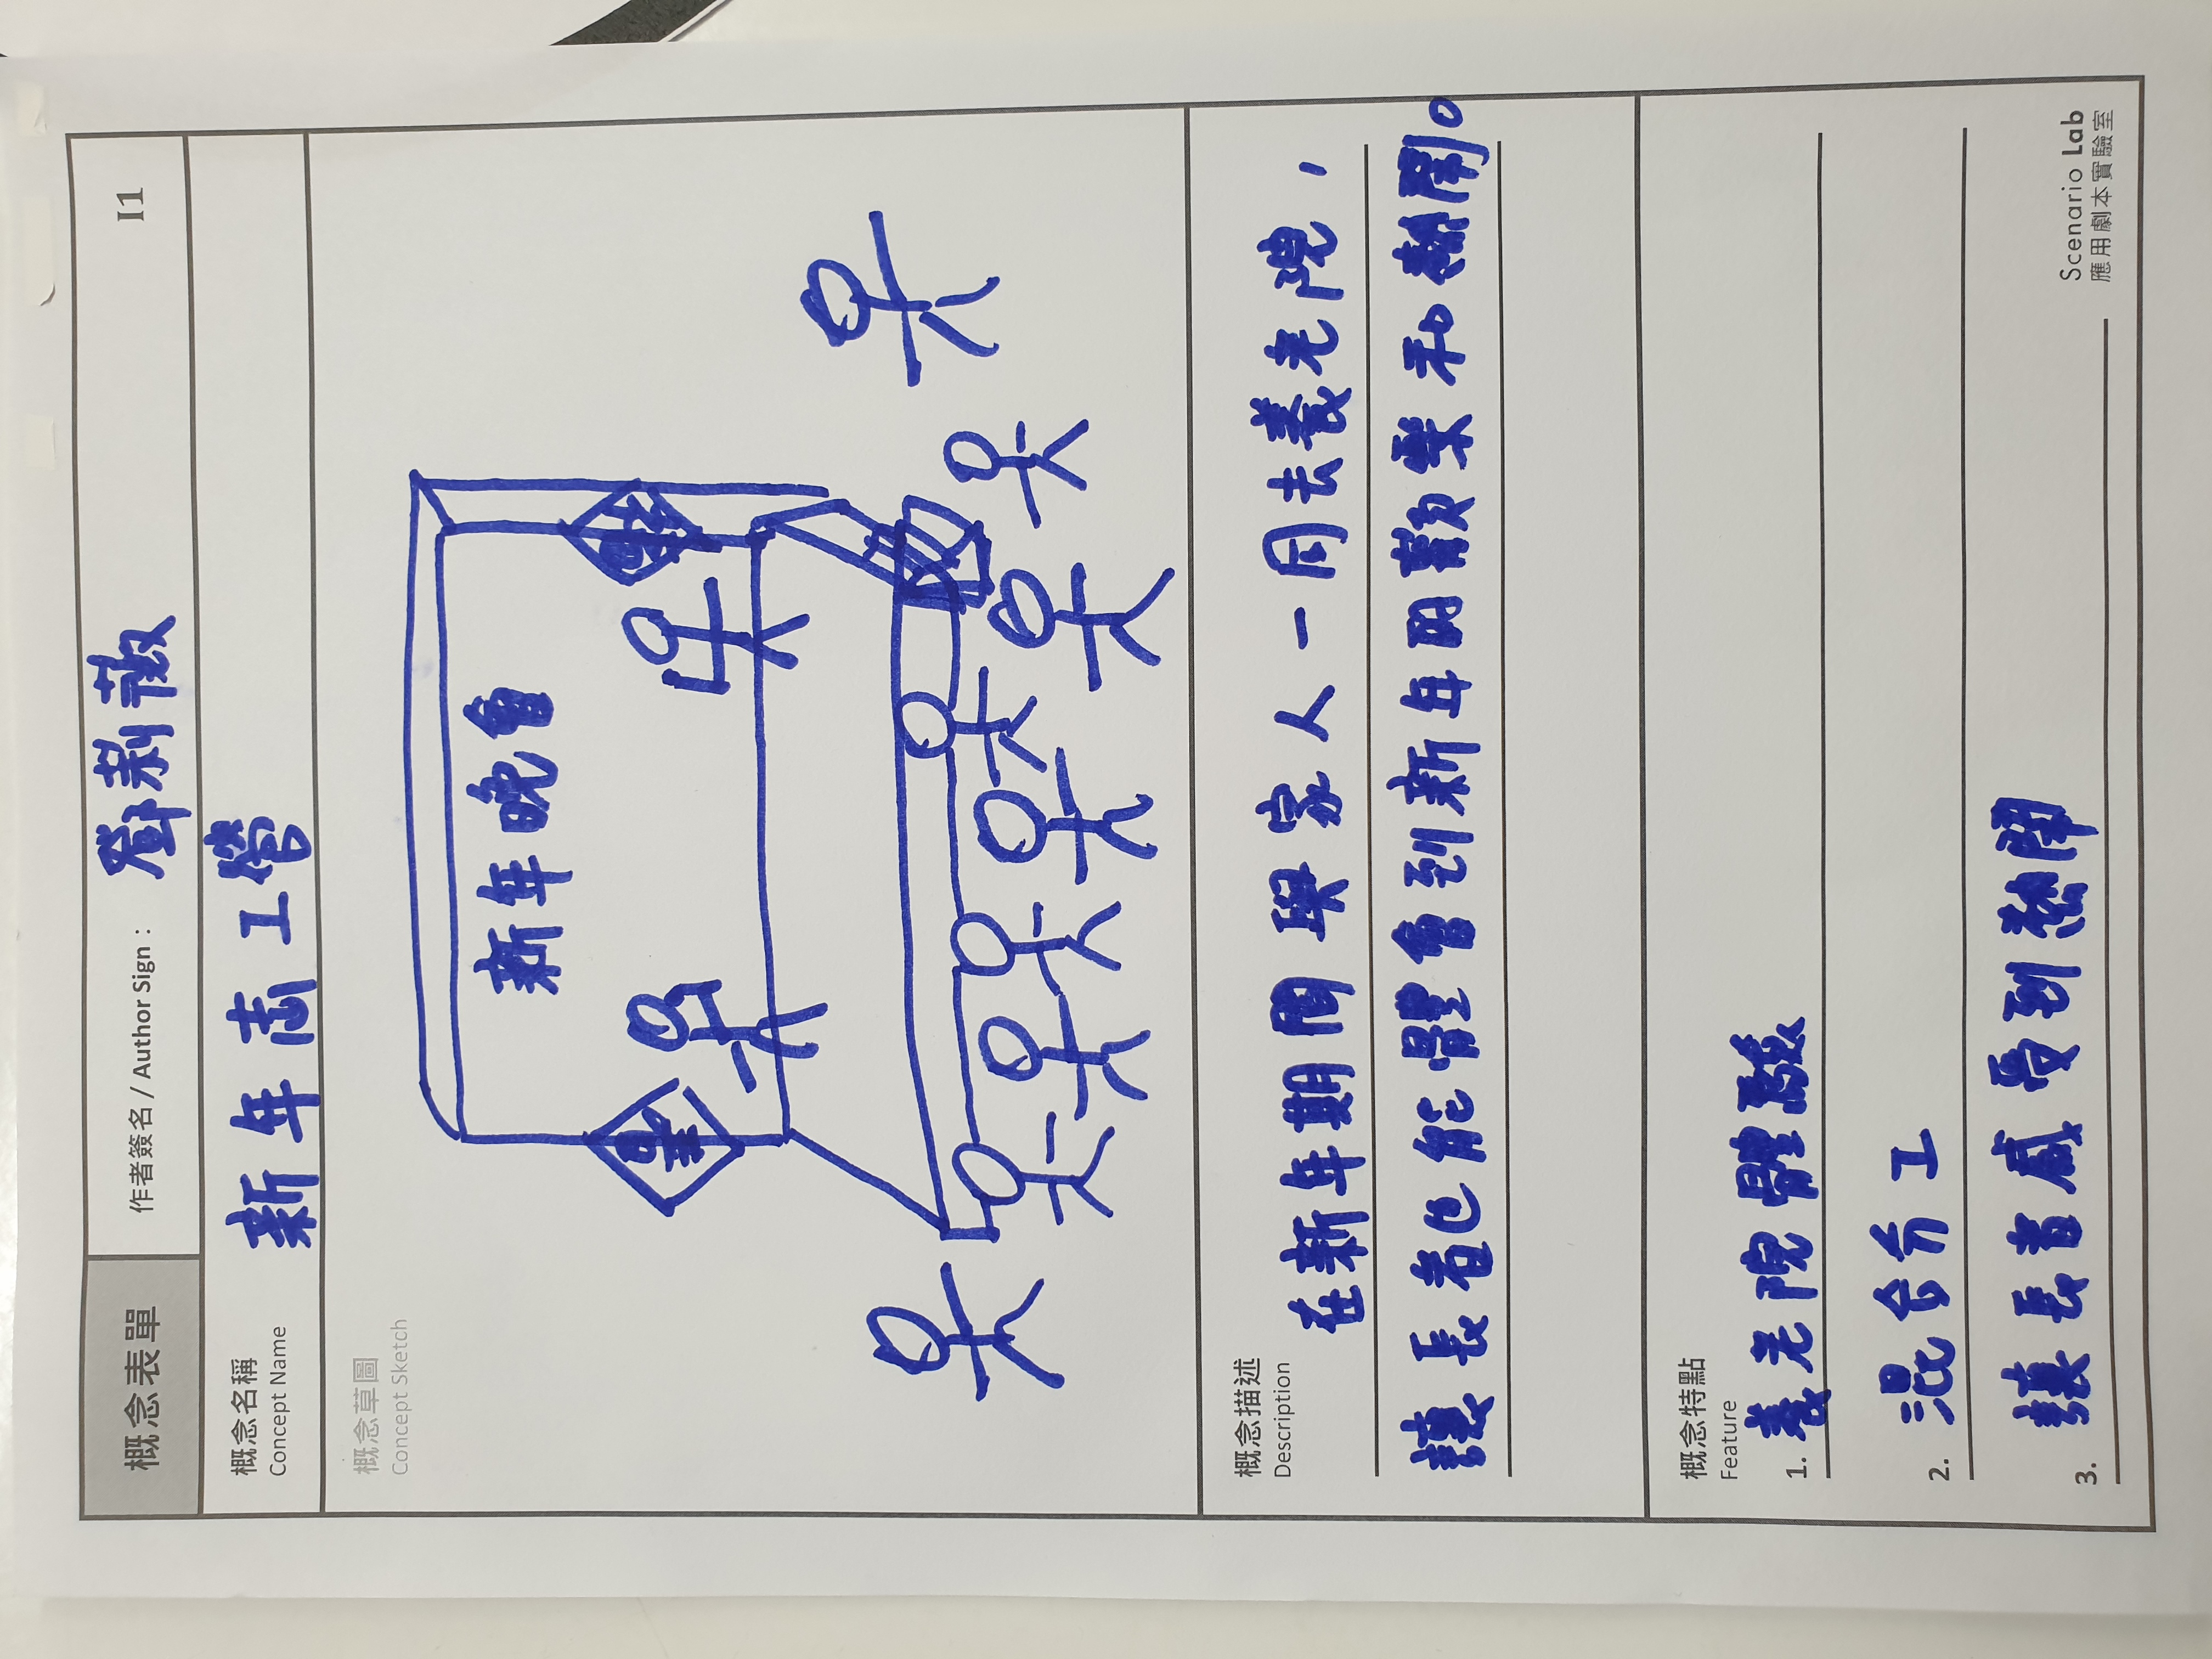 概念表單
作者簽名 / Author Sign : 鄧莉薇
I1
概念名稱
Concept Name
新年志工營
概念草圖
Concept Sketch
新年晚會
概念描述
Description
在新年期間與家人一同去養老院，
讓長者也能體會到新年的歡樂和熱鬧。
概念特點
Feature
1. 養老院體驗
2. 混合分工
3. 讓長者感受到熱鬧
Scenario Lab
應用劇本實驗室